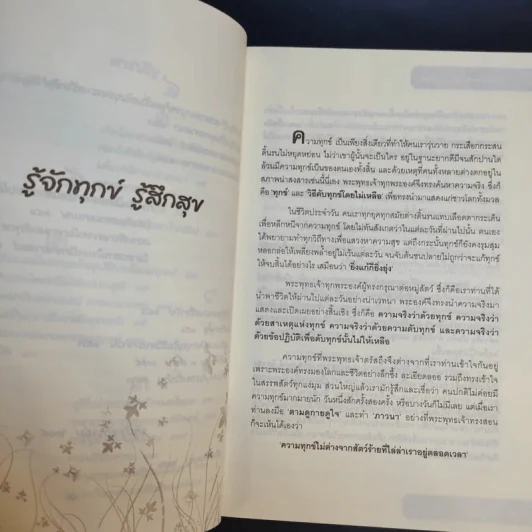 รู้จักทุกข์ รู้สึกสุข
ความทุกข์ เป็นเพียงสิ่งเดียวที่ทำให้คนเราวุ่นวาย กระเสือกกระสน
ดิ้นรนไม่หยุดหย่อน ไม่ว่าเขาผู้นั้นจะเป็นใคร อยู่ในฐานะยากดีมีจนสักปานใด
ล้วนมีความทุกข์เป็นของตนเองทั้งสิ้น และด้วยเหตุที่คนทั้งหลายต่างตกอยู่ใน
สภาพน่าสังเวชเช่นนี้นี่เอง พระพุทธเจ้าทุกพระองค์จึงทรงค้นหาความจริง ซึ่งก็
คือ 'ทุกข์' และ 'วิธีดับทุกข์โดยไม่เหลือ' เพื่อทรงนำมาแสดงแก่ชาวโลกทั้งมวล
ในชีวิตประจำวัน คนเราทุกยุคทุกสมัยต่างดิ้นรนแทบเลือดตากระเด็น
เพื่อหลีกหนีจากความทุกข์ โดยไม่ทันสังเกตว่าในแต่ละวันที่ผ่านไปนั้น ตนเอง
ได้พยายามทำทุกวิถีทางเพื่อแสวงหาความสุข แต่ถึงกระนั้นทุกข์ก็ยังคงรุมสุม
หลอกล่อให้เพลี่ยงพล้ำอยู่ไม่เว้นแต่ละวัน จนจับต้นชนปลายไม่ถูกว่าจะแก้ทุกข์
ให้จบสิ้นได้อย่างไร เสมือนว่า 'ยิ่งแก้ก็ยิ่งยุ่ง'
พระพุทธเจ้าทุกพระองค์ผู้ทรงกรุณาต่อหมู่สัตว์ ซึ่งก็คือเราท่านที่ได้
นำพาชีวิตให้ผ่านไปแต่ละวันอย่างน่าเวทนา พระองค์จึงทรงนำความจริงมา
แสดงและเปิดเผยอย่างสิ้นเชิง ซึ่งก็คือ ความจริงว่าด้วยทุกข์ ความจริงว่า
ด้วยสาเหตุแห่งทุกข์ ความจริงว่าด้วยความดับทุกข์ และความจริงว่า
ด้วยข้อปฏิบัติเพื่อดับทุกข์นั้นไม่ให้เหลือ
ความทุกข์ที่พระพุทธเจ้าตรัสถึงจึงต่างจากที่เราท่านเข้าใจกันอยู่
เพราะพระองค์ทรงมองโลกและชีวิตอย่างลึกซึ้ง ละเอียดลออ รวมถึงทรงเข้าใจ
ในสรรพสัตว์ทุกแง่มุม ส่วนใหญ่แล้วเรามักรู้สึกและเชื่อว่า คนปกติไม่ค่อยมี
ความทุกข์มากมายนัก วันหนึ่งสักครั้งสองครั้ง หรือบางวันก็ไม่มีเลย แต่เมื่อเรา
ท่านลงมือ 'ตามดูกายดูใจ' และทำ 'ภาวนา' อย่างที่พระพุทธเจ้าทรงสอน
ก็จะเห็นได้เองว่า
'ความทุกข์ไม่ต่างจากสัตว์ร้ายที่ไล่ล่าเราอยู่ตลอดเวลา'